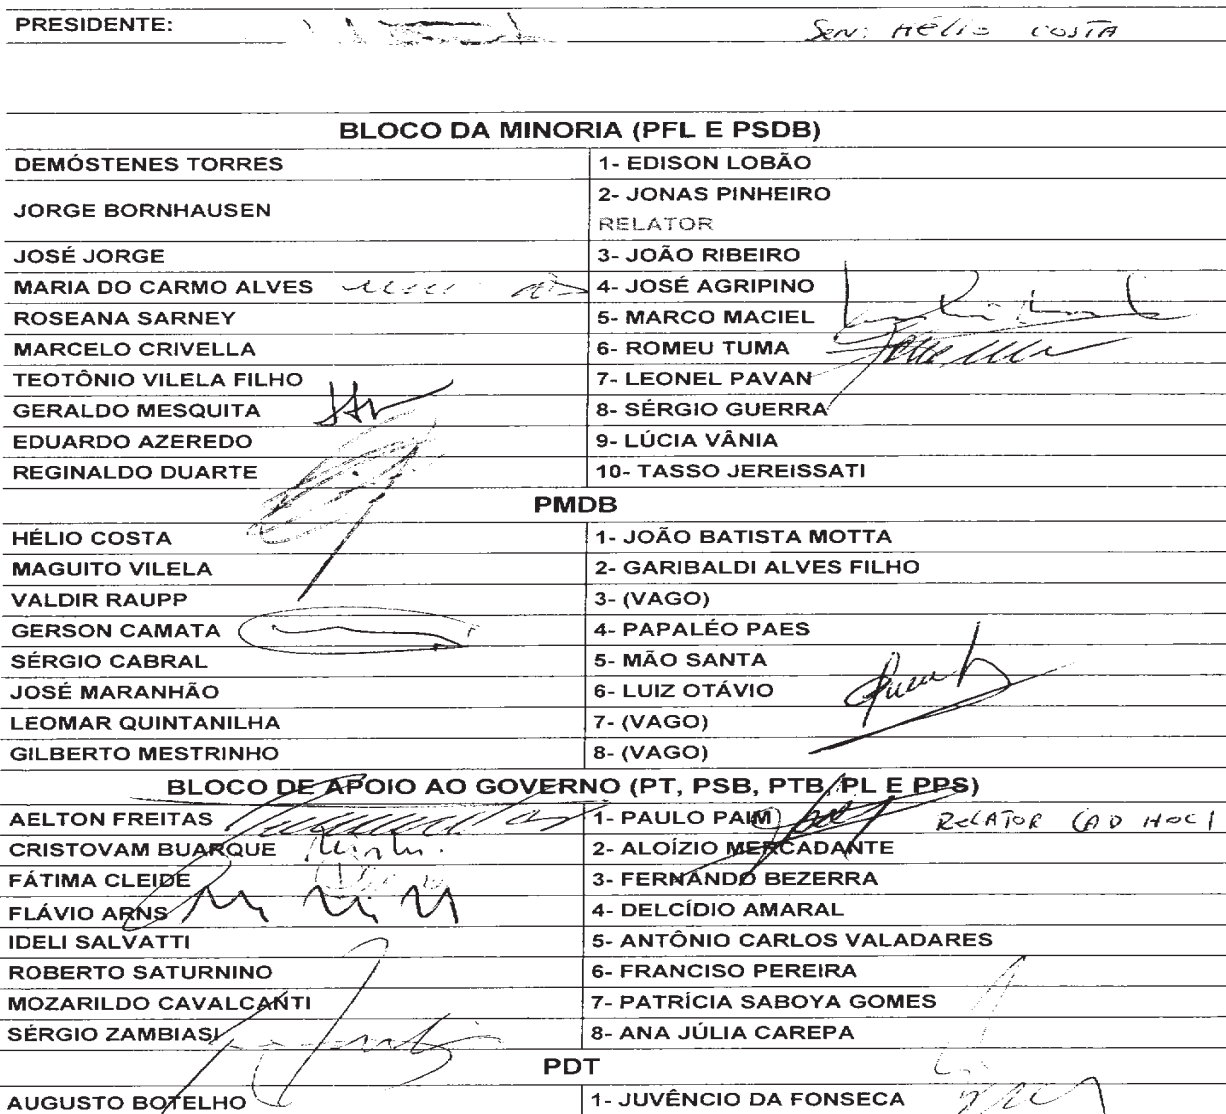 PRESIDENTE: SEN: HÉLIO COSTA
BLOCO DA MINORIA (PFL E PSDB)
DEMÓSTENES TORRES 1- EDISON LOBÃO
JORGE BORNHAUSEN 2- JONAS PINHEIRO
RELATOR
JOSÉ JORGE 3- JOÃO RIBEIRO
MARIA DO CARMO ALVES 4- JOSÉ AGRIPINO
ROSEANA SARNEY 5- MARCO MACIEL
MARCELO CRIVELLA 6- ROMEU TUMA
TEOTÔNIO VILELA FILHO 7- LEONEL PAVAN
GERALDO MESQUITA 8- SÉRGIO GUERRA
EDUARDO AZEREDO 9- LÚCIA VÂNIA
REGINALDO DUARTE 10- TASSO JEREISSATI
PMDB
HÉLIO COSTA 1- JOÃO BATISTA MOTTA
MAGUITO VILELA 2- GARIBALDI ALVES FILHO
VALDIR RAUPP 3- (VAGO)
GERSON CAMATA 4- PAPALÉO PAES
SÉRGIO CABRAL 5- MÃO SANTA
JOSÉ MARANHÃO 6- LUIZ OTÁVIO
LEOMAR QUINTANILHA 7- (VAGO)
GILBERTO MESTRINHO 8- (VAGO)
BLOCO DE APOIO AO GOVERNO (PT, PSB, PTB, PL E PPS)
AELTON FREITAS 1- PAULO PAIM RELATOR (AD HOC)
CRISTOVAM BUARQUE 2- ALOÍZIO MERCADANTE
FÁTIMA CLEIDE 3- FERNANDO BEZERRA
FLÁVIO ARNS 4- DELCÍDIO AMARAL
IDELI SALVATTI 5- ANTÔNIO CARLOS VALADARES
ROBERTO SATURNINO 6- FRANCISO PEREIRA
MOZARILDO CAVALCANTI 7- PATRÍCIA SABOYA GOMES
SÉRGIO ZAMBIASI 8- ANA JÚLIA CAREPA
PDT
AUGUSTO BOTELHO 1- JUVÊNCIO DA FONSECA